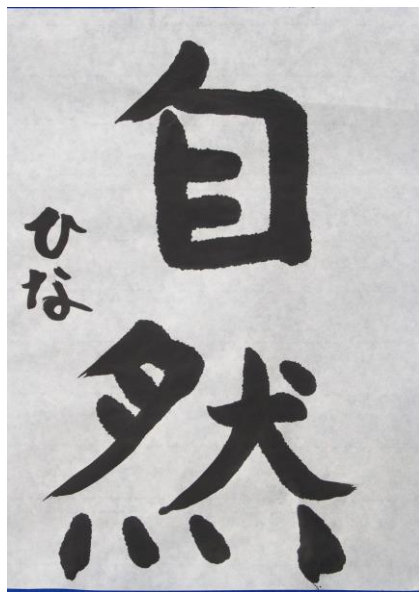 自然
ひな